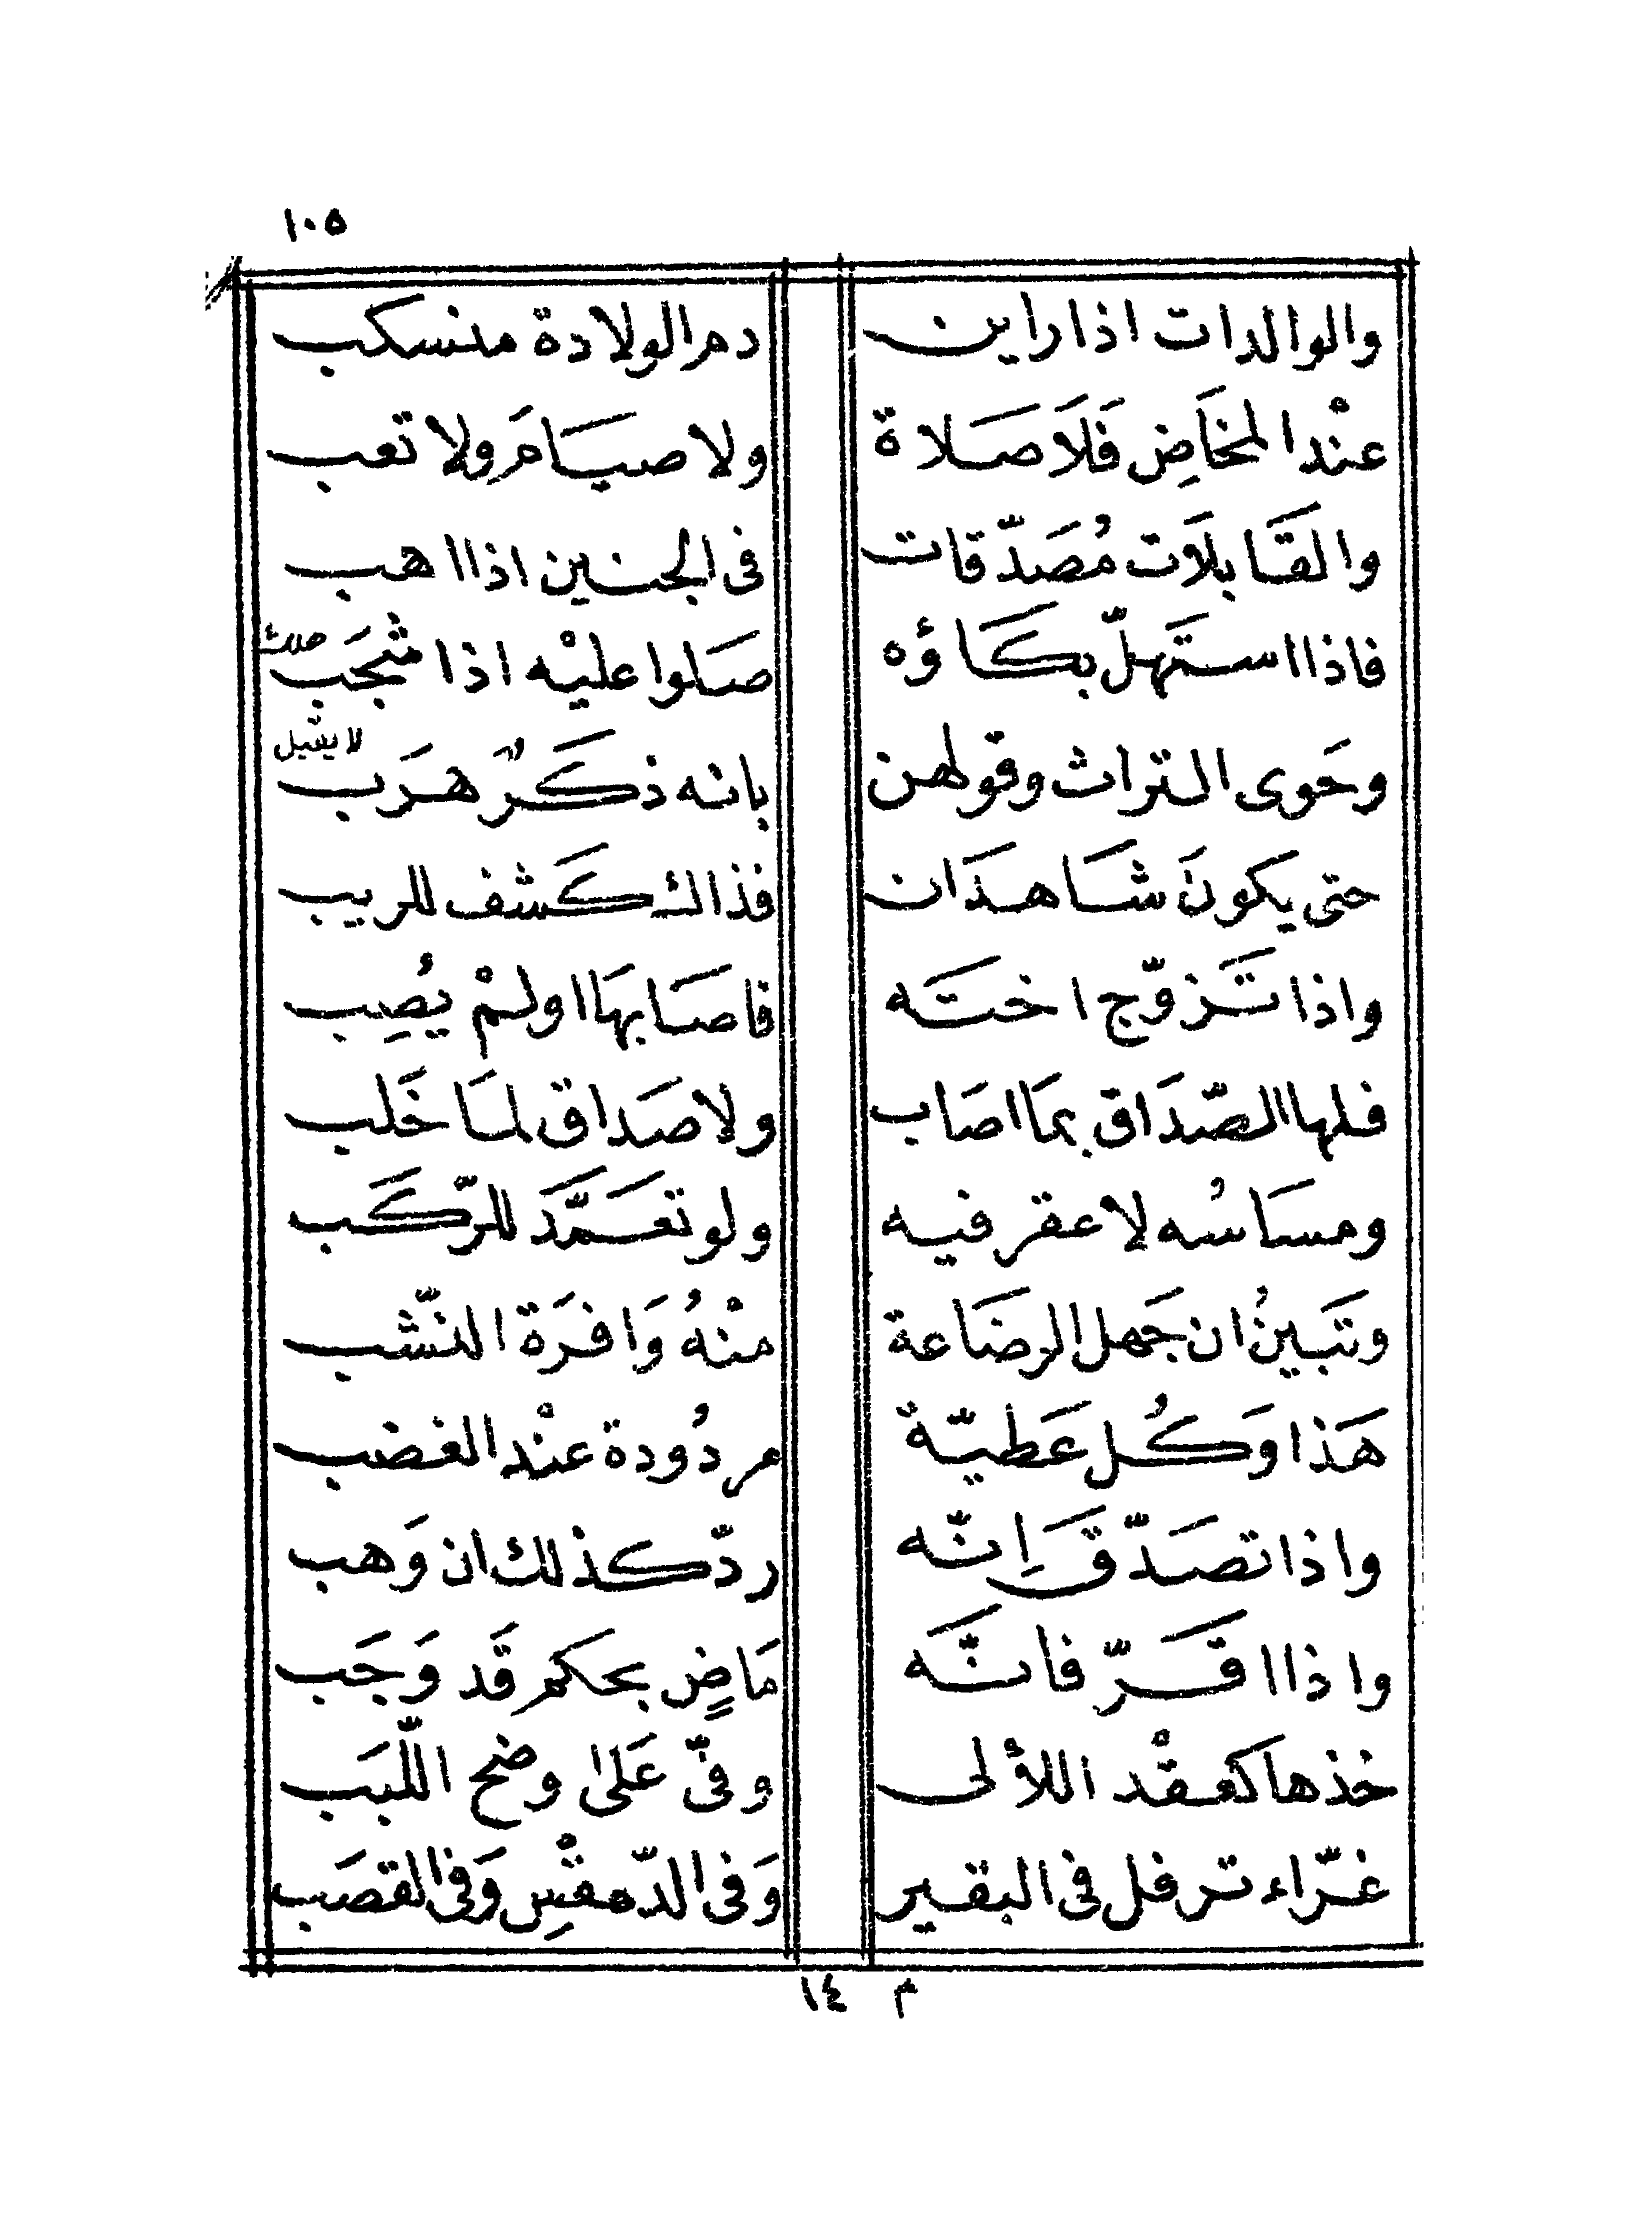 ١٠٥
والوالدات اذا راين دم الولادة منسكب
عنْد المخَاضِ فَلَا صَلاة ولا صيَام َولا تعب
والقَابلَات مُصَدّقات فى الجنين اذا اهب
فاذا استَهلّ بكَاؤه صَلوا عليْه اذا شجَب
هلك
وحَوى التراث وقولهن بانه ذكَرٌ هَرَب
لا يشيل
حتى يكونَ شَاهدَان فذاك كَشف للريب
واذا تَزوّج اختَه فاصَابهَا اولمْ يُصِب
فلها الصّدَاق بمَا اصَاب ولا صَداق لمَا خَلب
ومسَاسُه لا عقر فيه ولو تعَمَّد للرّكَب
وتَبينُ ان جَهل الرضَاعة منْهُ وَافرَة النّشب
هَذا وَكُل عَطيّةٌ مردُودة عنْد الغضب
واذا تصَدّقَ اِنّه ردّ كذلك ان وَهب
واذا اقَرّ فانّه مَاضٍ بحكم قَد وَجَب
خذها كَعقْد اللأْلى وفىّ عَلىٰ وضح اللّبَب
غرّاء ترفل فى البقير وَفى الدّمقْسِ وَفى القصَب
م ١٤